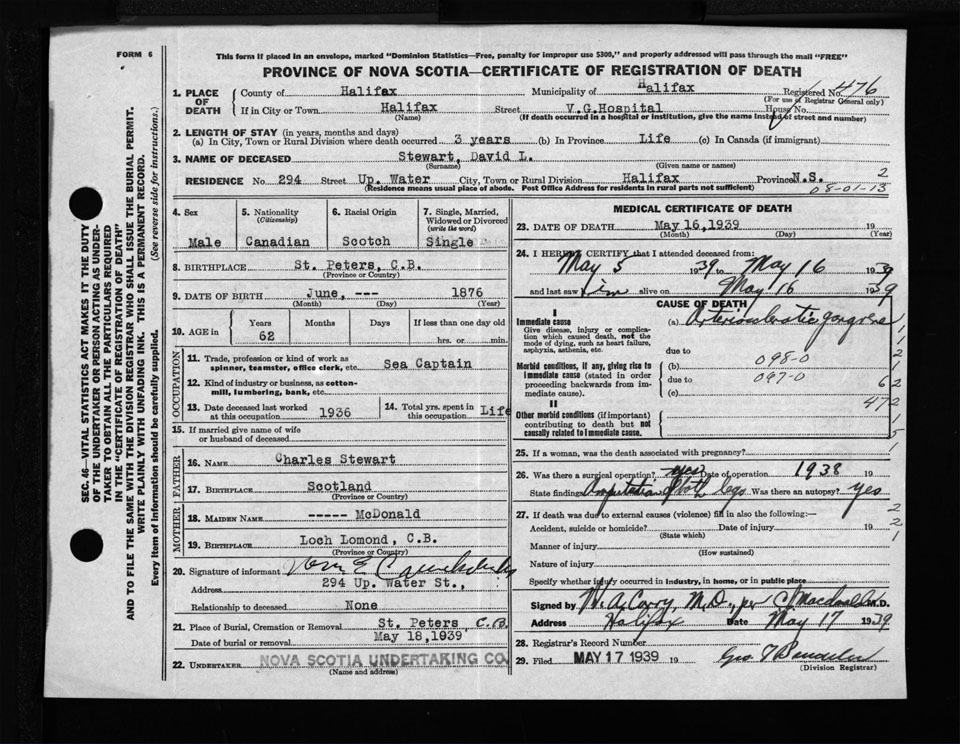 FORM 6
This form if placed in an envelope, marked "Dominion Statistics—Free, penalty for improper use $300," and properly addressed will pass through the mail "FREE"
PROVINCE OF NOVA SCOTIA—CERTIFICATE OF REGISTRATION OF DEATH
SEC. 46—VITAL STATISTICS ACT MAKES IT THE DUTY
OF THE UNDERTAKER OR PERSON ACTING AS UNDER-
TAKER TO OBTAIN ALL THE PARTICULARS REQUIRED
IN THE "CERTIFICATE OF REGISTRATION OF DEATH"
AND TO FILE THE SAME WITH THE DIVISION REGISTRAR WHO SHALL ISSUE THE BURIAL PERMIT.
WRITE PLAINLY WITH UNFADING INK. THIS IS A PERMANENT RECORD.
Every item of information should be carefully supplied. (See reverse side for instructions.)
1. PLACE OF DEATH
County of Halifax Municipality of Halifax Registered No. 476
(For use of Registrar General only)
If in City or Town Halifax Street V.G.Hospital House No.
(Name) (If death occurred in a hospital or institution, give the name instead of street and number)
2. LENGTH OF STAY (in years, months and days)
(a) In City, Town or Rural Division where death occurred 3 years (b) In Province Life (c) In Canada (if immigrant)
3. NAME OF DECEASED Stewart, David L.
(Surname) (Given name or names)
2
RESIDENCE No. 294 Street Up. Water City, Town or Rural Division Halifax Province N.S.
(Residence means usual place of abode. Post Office Address for residents in rural parts not sufficient) 08-01-13
4. Sex Male
5. Nationality (Citizenship) Canadian
6. Racial Origin Scotch
7. Single, Married, Widowed or Divorced (write the word) Single
8. BIRTHPLACE St. Peters, C.B.
(Province or Country)
9. DATE OF BIRTH June, --- 1876
(Month) (Day) (Year)
10. AGE in Years Months Days If less than one day old
62 hrs. or min.
OCCUPATION
11. Trade, profession or kind of work as spinner, teamster, office clerk, etc. Sea Captain
12. Kind of industry or business, as cotton-mill, lumbering, bank, etc.
13. Date deceased last worked at this occupation 1936
14. Total yrs. spent in this occupation Life
15. If married give name of wife or husband of deceased
FATHER
16. NAME Charles Stewart
17. BIRTHPLACE Scotland
(Province or Country)
MOTHER
18. MAIDEN NAME ----- McDonald
19. BIRTHPLACE Loch Lomond, C.B.
(Province or Country)
20. Signature of informant
Address 294 Up. Water St.,
Relationship to deceased None
21. Place of Burial, Cremation or Removal St. Peters, C.B.
Date of burial or removal May 18,1939
22. UNDERTAKER NOVA SCOTIA UNDERTAKING CO.
(Name and Address)
MEDICAL CERTIFICATE OF DEATH
23. DATE OF DEATH May 16,1939 19
(Month) (Day) (Year)
24. I HEREBY CERTIFY that I attended deceased from:
May 5 1939 to May 16 1939
and last saw him alive on May 16 1939
CAUSE OF DEATH
I
Immediate cause
Give disease, injury or complication which caused death, not the mode of dying, such as heart failure, asphyxia, asthenia, etc.
(a) Arteriosclerotic gangrene
due to
Morbid conditions, if any, giving rise to immediate cause (stated in order proceeding backwards from immediate cause).
(b) 098-0
due to 097-0
(c)
II
Other morbid conditions (if important) contributing to death but not causally related to immediate cause.
1
1
2
1
62
472
1
5
1
25. If a woman, was the death associated with pregnancy?
26. Was there a surgical operation? yes Date of operation 1938 19
State findings Amputation of both legs Was there an autopsy? yes
27. If death was due to external causes (violence) fill in also the following:—
Accident, suicide or homicide? Date of injury 19
(State which)
Manner of injury
(How sustained)
Nature of injury
Specify whether injury occurred in industry, in home, or in public place
2
2
1
Signed by M.D. per M.D.
Address Halifax Date May 17 1939
28. Registrar's Record Number
29. Filed MAY 17 1939 19
(Division Registrar)